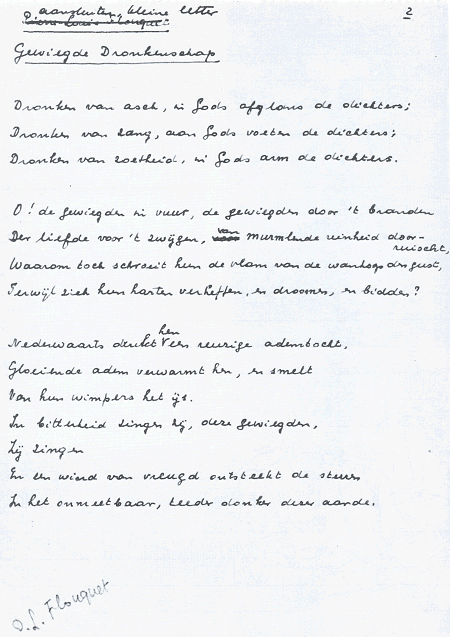 aansluiten, kleine letter
Pierre Louis Flouquet:
2
Gewiegde Dronkenschap
Dronken van asch, in Gods afglans de dichters;
Dronken van zang, aan Gods voeten de dichters;
Dronken van zoetheid, in Gods arm de dichters.
O! de gewiegden in vuur, de gewiegden door 't branden
Der liefde voor 't zwijgen, van murmlende reinheid door-
ruischt,
Waarom toch schroeit hun de vlam van de wanhoop
Terwijl zich hun harten verheffen, en droomen, en bidden?
Nederwaarts drukt hen een reuzige ademtocht,
Gloeiende adem verwarmt hen, en smelt
Van hun wimpers het ijs.
In bitterheid zingen zij, deze gewiegden,
Zij zingen
En een wind van vreugd ontsteekt de sterren
In het onmeetbaar, teeder donker dezer aarde.
P. L. Flouquet